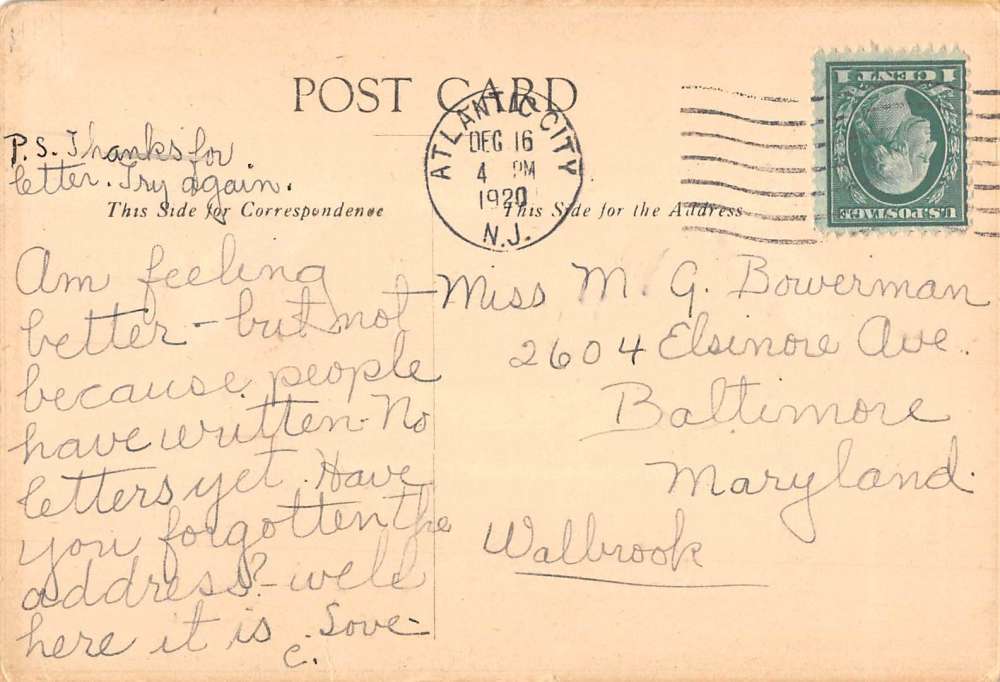 POST CARD
ATLANTIC CITY
DEC 16
4 PM
1920
N.J.
1 CENT 1
U.S. POSTAGE
P.S. Thanks for
letter. Try again.
This Side for Correspondence
This Side for the Address
Am feeling
better - but not
because people
have written. No
letters yet. Have
you forgotten the
address? - well
here it is. Love -
C.
Miss M. G. Bowerman
2604 Elsinore Ave.
Baltimore
Maryland.
Walbrook